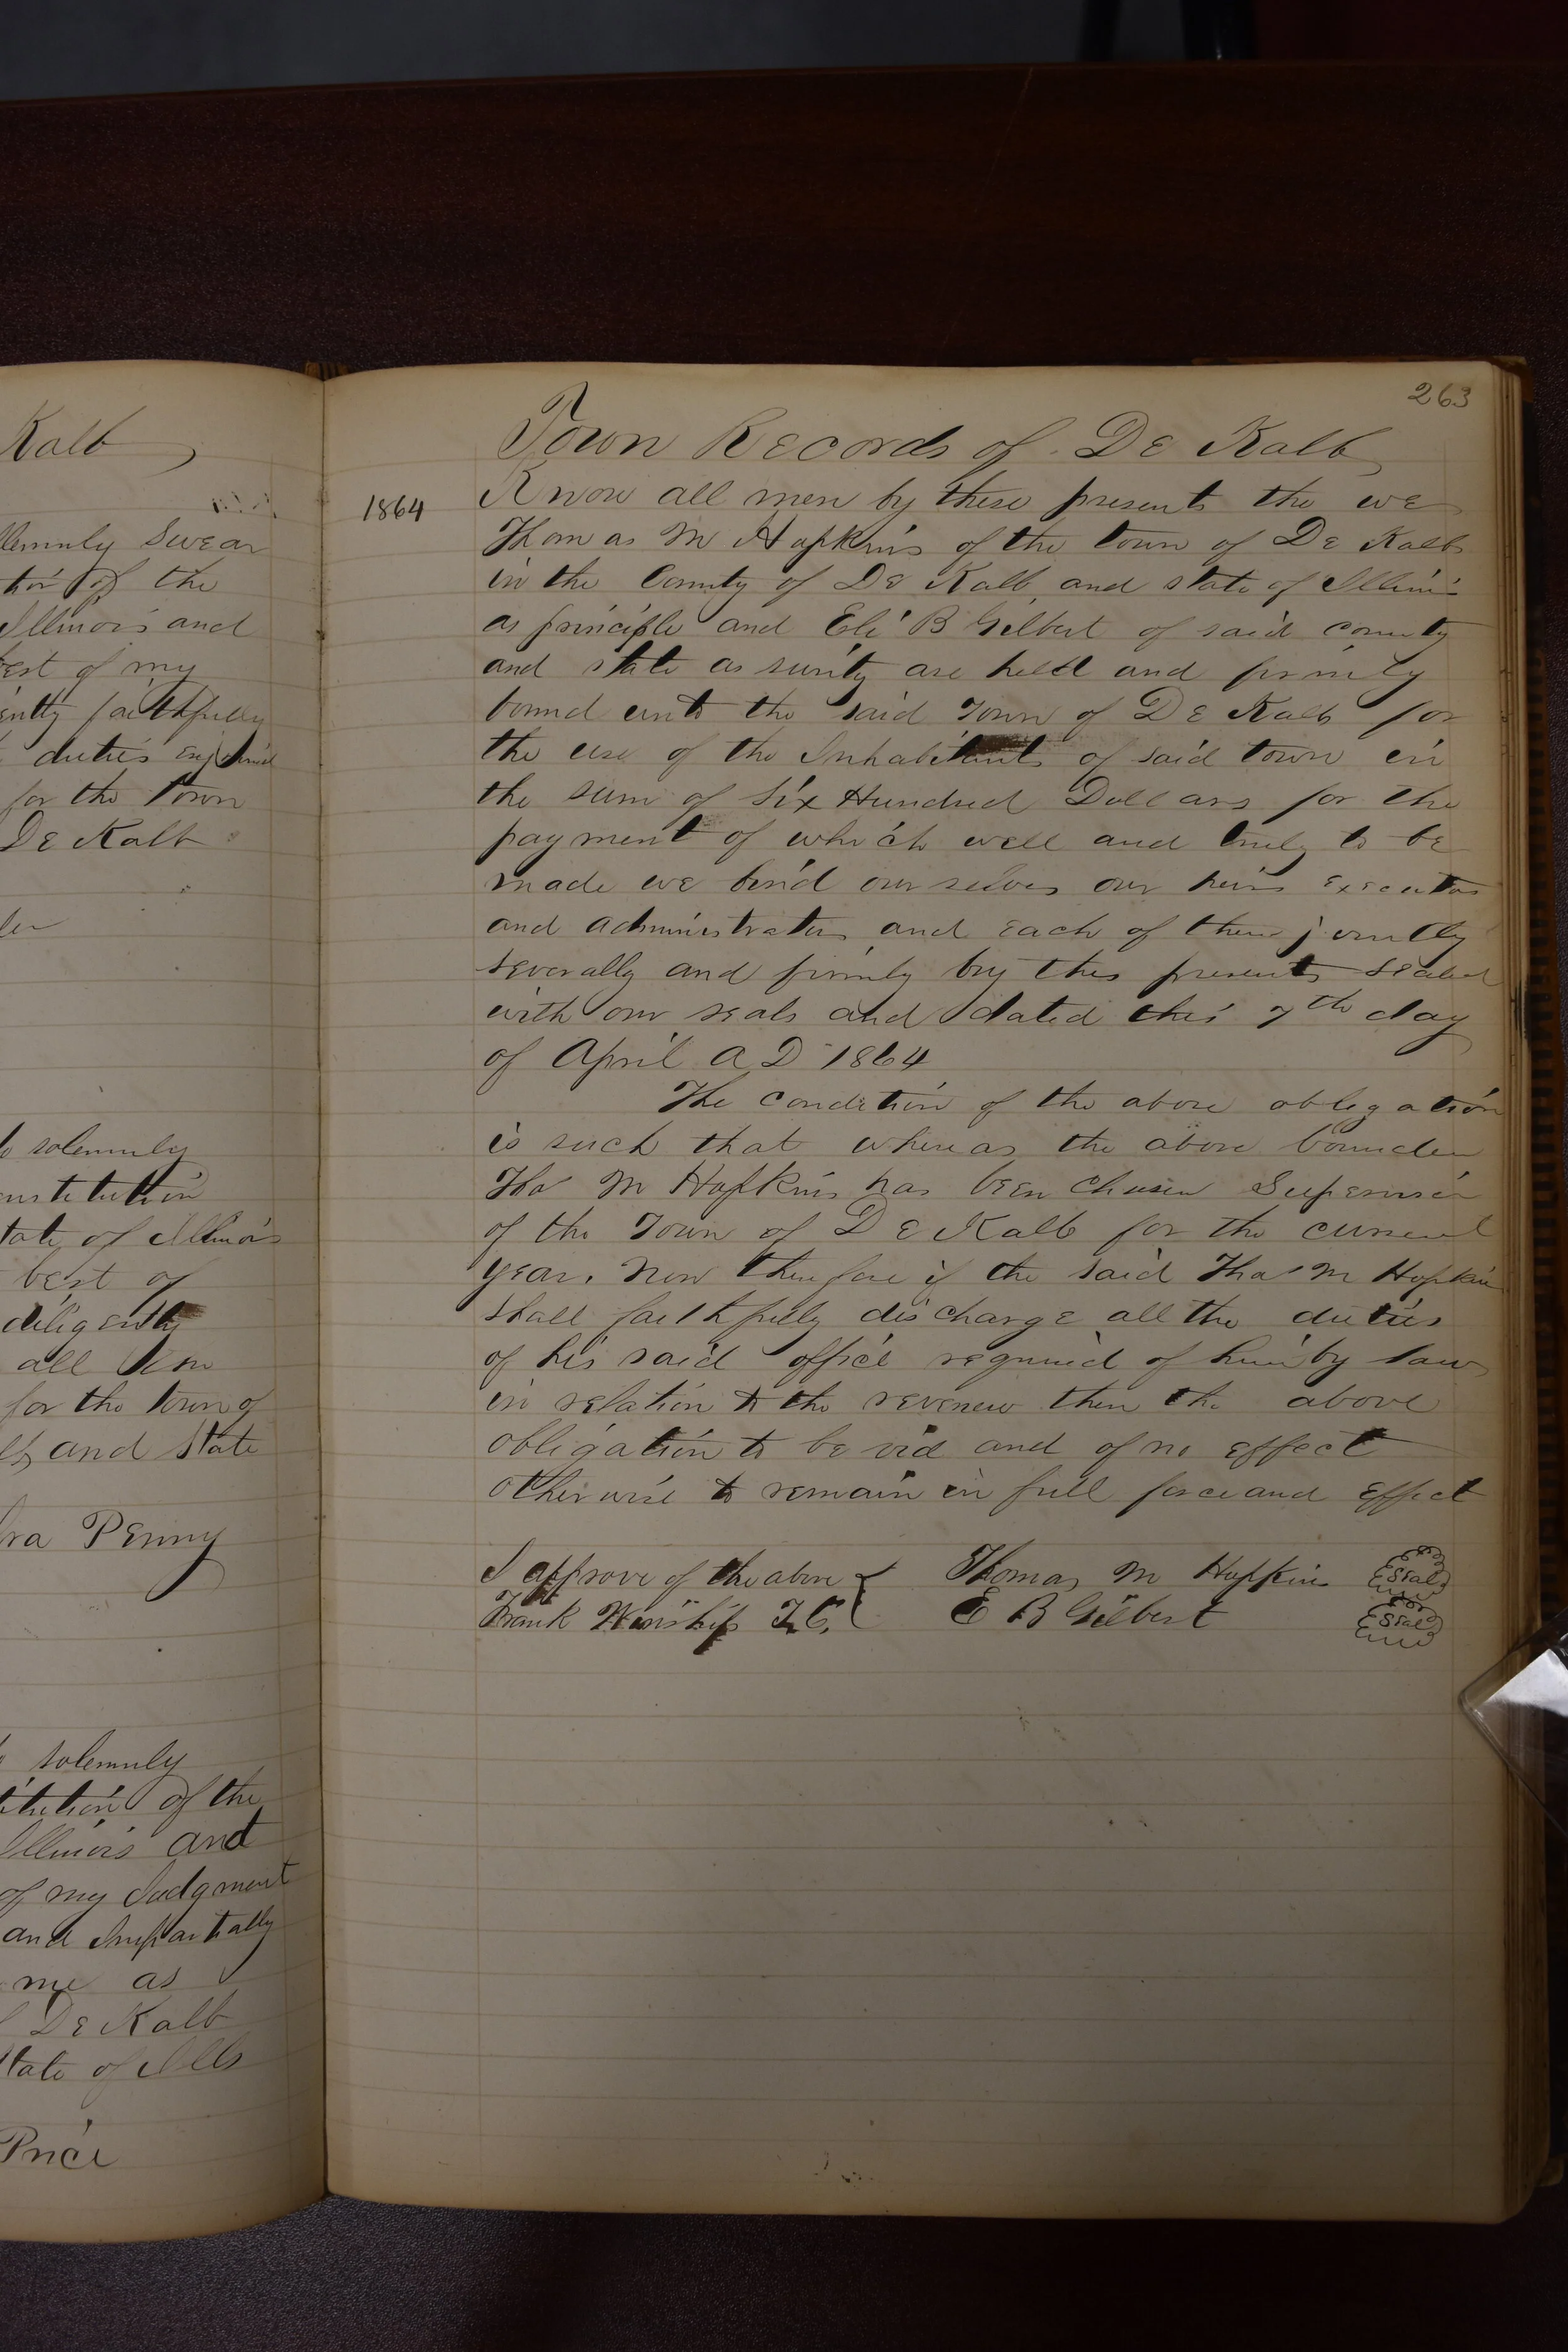 Kalb
lemnly Swear
of the
Illinois and
est of my
ently faithfully
duties enjoined
for the Town
De Kalb
solemnly
nstitution
tate of Illinois
best of
diligently
all
for the town of
and State
Ira Penny
solemnly
titution of the
Illinois and
of my Judgment
and Impartially
me as
De Kalb
State of Ills
Price
263
Town Records of De Kalb
1864 Know all men by these presents the we
Thomas M Hopkins of the town of De Kalb
in the County of De Kalb and state of Illinois
as principle and Eli B Gilbert of said county
and state as surity are held and firmly
bound unto the said Town of De Kalb for
the use of the Inhabitants of said town in
the sum of Six Hundred Dollars for the
payment of which well and truly to be
made we bind our selves our heirs Executors
and administrators and each of them jointly
severally and firmly by this presents sealed
with our seals and dated this 7th day
of April A D 1864
The condition of the above obligation
is such that whereas the above bounden
Tho M Hopkins has been chosen Supervisor
of the Town of De Kalb for the current
year. Now therefore if the said Tho M Hopkins
shall faithfully discharge all the duties
of his said office required of him by law
in relation to the revenew then the above
obligation to be void and of no effect
otherwise to remain in full force and effect
I approve of the above Thomas M Hopkins Seal
Frank Winship T. C. E B Gilbert Seal